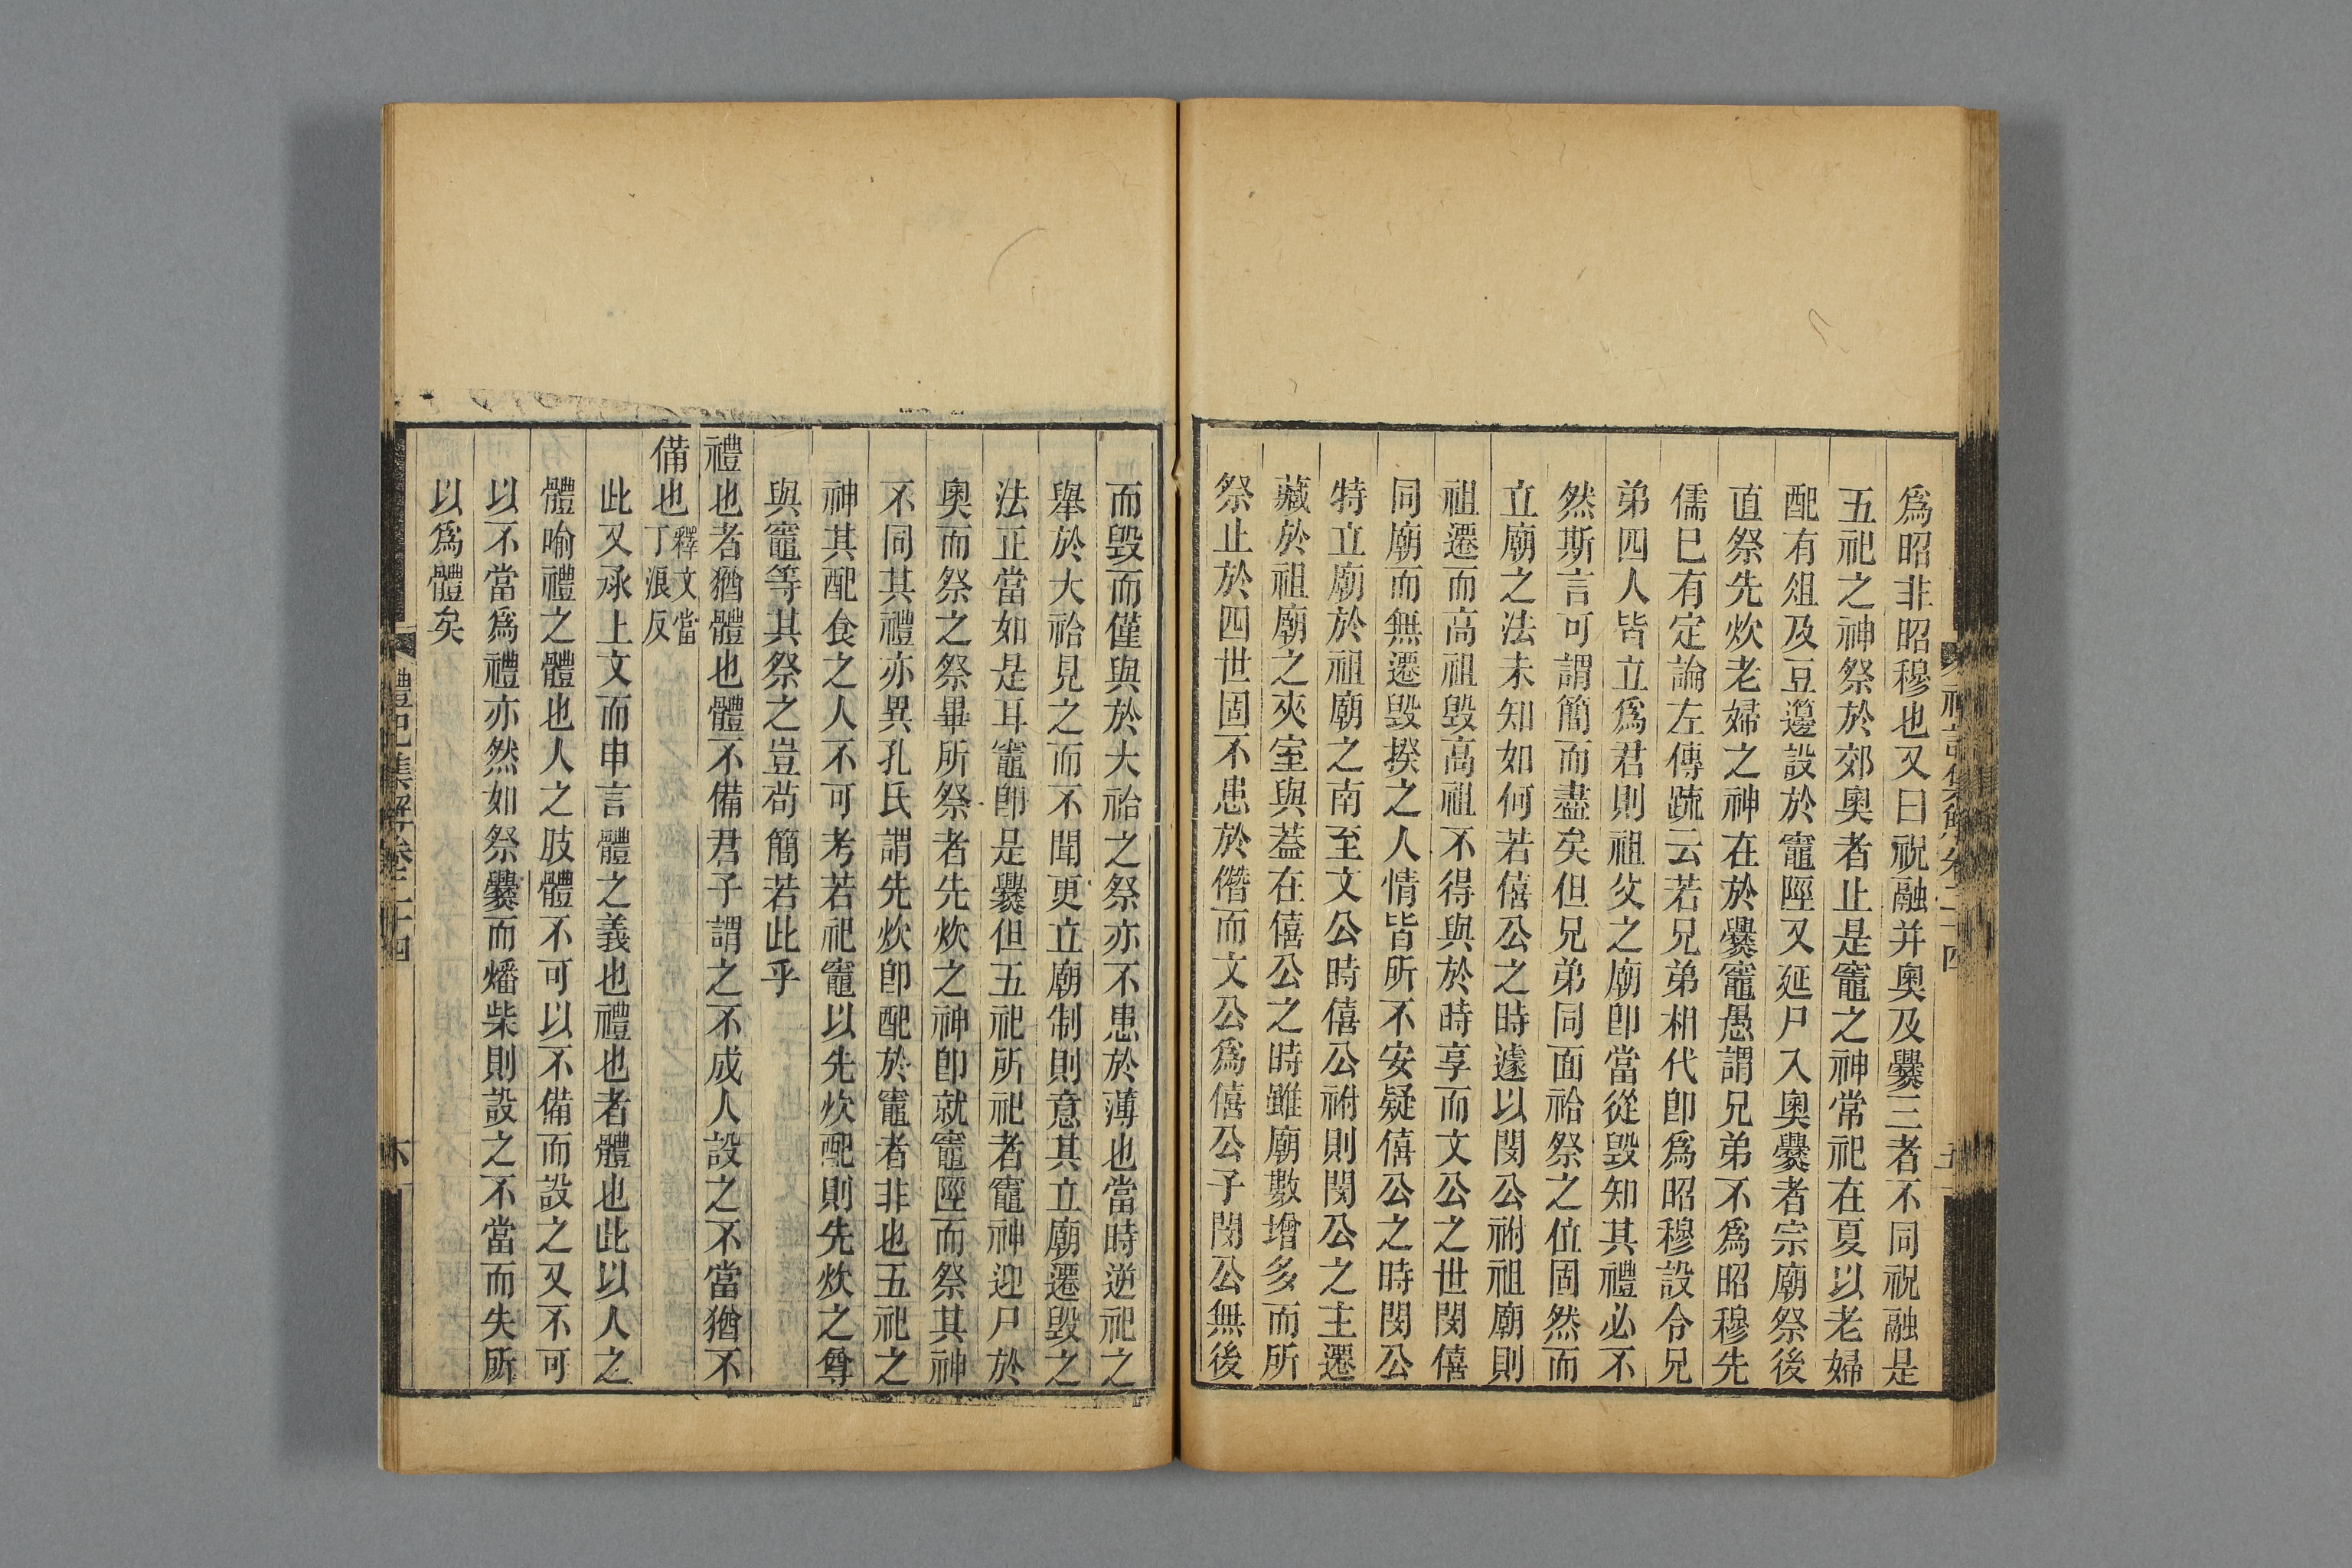 爲昭非昭穆也又曰祝融并奧及爨三者不同祝融是
五祀之神祭於郊奧者止是竈之神常祀在夏以老婦
配有俎及豆籩設於竈陘又延尸入奧爨者宗廟祭後
直祭先炊老婦之神在於爨竈愚謂兄弟不爲昭穆先
儒已有定論左傳疏云若兄弟相代卽爲昭穆設令兄
弟四人皆立爲君則祖父之廟卽當從毀知其禮必不
然斯言可謂簡而盡矣但兄弟同面祫祭之位固然而
立廟之法未知如何若僖公之時遽以閔公祔祖廟則
祖遷而高祖毀高祖不得與於時享而文公之世閔僖
同廟而無遷毀揆之人情皆所不安疑僖公之時閔公
特立廟於祖廟之南至文公時僖公祔則閔公之主遷
藏於祖廟之夾室與蓋在僖公之時雖廟數增多而所
祭止於四世固不患於僭而文公爲僖公子閔公無後
而毀而僅與於大祫之祭亦不患於薄也當時逆祀之
舉於大祫見之而不聞更立廟制則意其立廟遷毀之
法正當如是耳竈卽是爨但五祀所祀者竈神迎尸於
奧而祭之祭畢所祭者先炊之神卽就竈陘而祭其神
不同其禮亦異孔氏謂先炊卽配於竈者非也五祀之
神其配食之人不可考若祀竈以先炊配則先炊之尊
與竈等其祭之豈苟簡若此乎
禮也者猶體也體不備君子謂之不成人設之不當猶不
備也釋文當丁浪反
此又承上文而申言體之義也禮也者體也此以人之
體喻禮之體也人之肢體不可以不備而設之又不可
以不當爲禮亦然如祭爨而燔柴則設之不當而失所
以爲體矣
禮記集解卷二十四